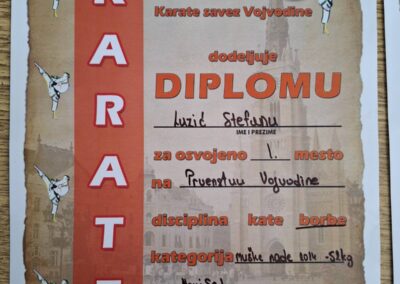 KARATE
Karate savez Vojvodine
dodeljuje
DIPLOMU
Luzić Stefanu
IME I PREZIME
za osvojeno 1. mesto
na Prvenstvu Vojvodine
disciplina kate borbe
kategorija muške nade 2014 -52kg
Novi Sad